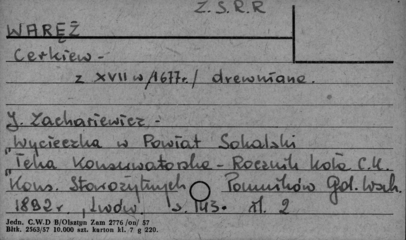 Z.S.R.R
WARĘŻ
Cerkiew -
z XVII w /1677r./ drewniana.
J. Zachariewicz -
"Wycieczka w Powiat Sokalski
"Teka Konserwatorska - Rocznik koła C.K.
Kons. Starożytnych Pomników Gal. Wsch.
1892r Lwów s. 143. il. 2
Jedn. C.W.D B/Olsztyn Zam 2776 /on/ 57
Bitk. 2563/57 10.000 szt. karton kl. 7 g 220.